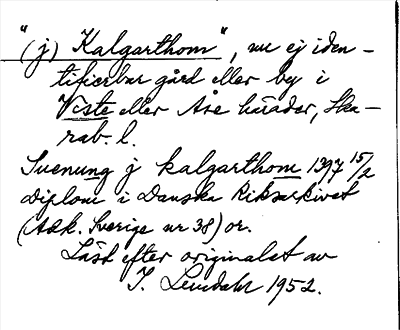 "(j) Kalgarthom", nu ej iden-
tifierbar gård eller by i
Viste eller Åse härader, Ska-
rab. l.
Suenung j kalgarthom 1397 15/2
Diplom i Danska Riksarkivet
(Add. Sverige nr 38) or.
Läst efter originalet av
I. Lundahl 1952.